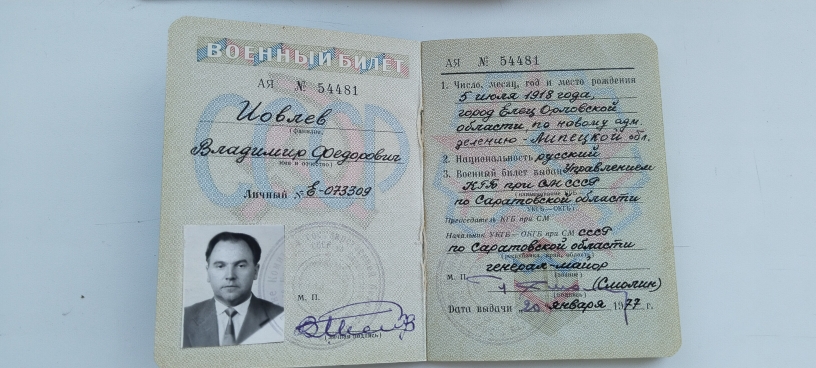 ВОЕННЫЙ БИЛЕТ
АЯ № 54481
Иовлев
(фамилия)
Владимир Федорович
имя и отчество)
Личный № Е-073309
М. П.
(личная подпись)
АЯ № 54481
1. Число, месяц, год и место рождения
5 июля 1918 года,
город Елец Орловской
области, по новому адм.
делению - Липецкой обл.
2. Национальность русский
3. Военный билет выдан Управлением
КГБ при СМ СССР
по Саратовской области
УКГБ—ОКГБ)
Председатель КГБ при СМ
Начальник УКГБ—ОКГБ при СМ СССР
по Саратовской области
(республика, край, область)
генерал-майор
(звание)
М. П. (Смолин)
(подпись)
Дата выдачи 20 января 1977 г.